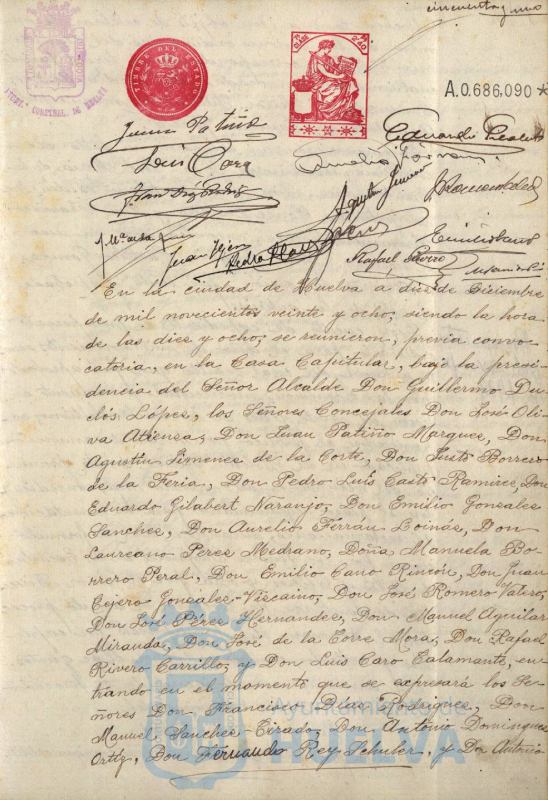 cincuenta y uno
TIMBRE DEL ESTADO
8ª CLASE
A.0.686,090 *
Juan Patiño
Luis Caro
Eduardo
Aurelio Ferran
Agustín Jimenez
J. Romero
Juan Tejero
Pedro
Rafael Rivero
Emilio Cano
En la ciudad de Huelva a diez de Diciembre
de mil novecientos veinte y ocho, siendo la hora
de las dies y ocho, se reunieron, previa convo-
catoria, en la Casa Capitular, bajo la presi-
dencia del Señor Alcalde Don Guillermo Du-
clós López, los Señores Concejales Don José Oli-
va Atienza, Don Juan Patiño Marques, Don
Agustín Jimenes de la Corte, Don Justo Borrero
de la Feria, Don Pedro Luis Casto Ramires, Don
Eduardo Gilabert Naranjo, Don Emilio Gonzales
Sanches, Don Aurelio Ferrau Loinás, Don
Laureano Peres Medrano, Doña Manuela Bo-
rrero Peral, Don Emilio Cano Rincón, Don Juan
Tejero Gonzales-Viscaino, Don José Romero Valero,
Don José Péres Hernandes, Don Manuel Aguilar
Miranda, Don José de la Torre Mora, Don Rafael
Rivero Carrillo, y Don Luis Caro Talamante, en-
trando en el momento que se expresará los Se-
ñores Don Francisco Días Rodrigues, Don
Manuel Sanches-Tirado, Don Antonio Domingues
Ortíz, Don Fernando Rey Schuler, y Don Antonio
Ayuntamiento de
HUELVA